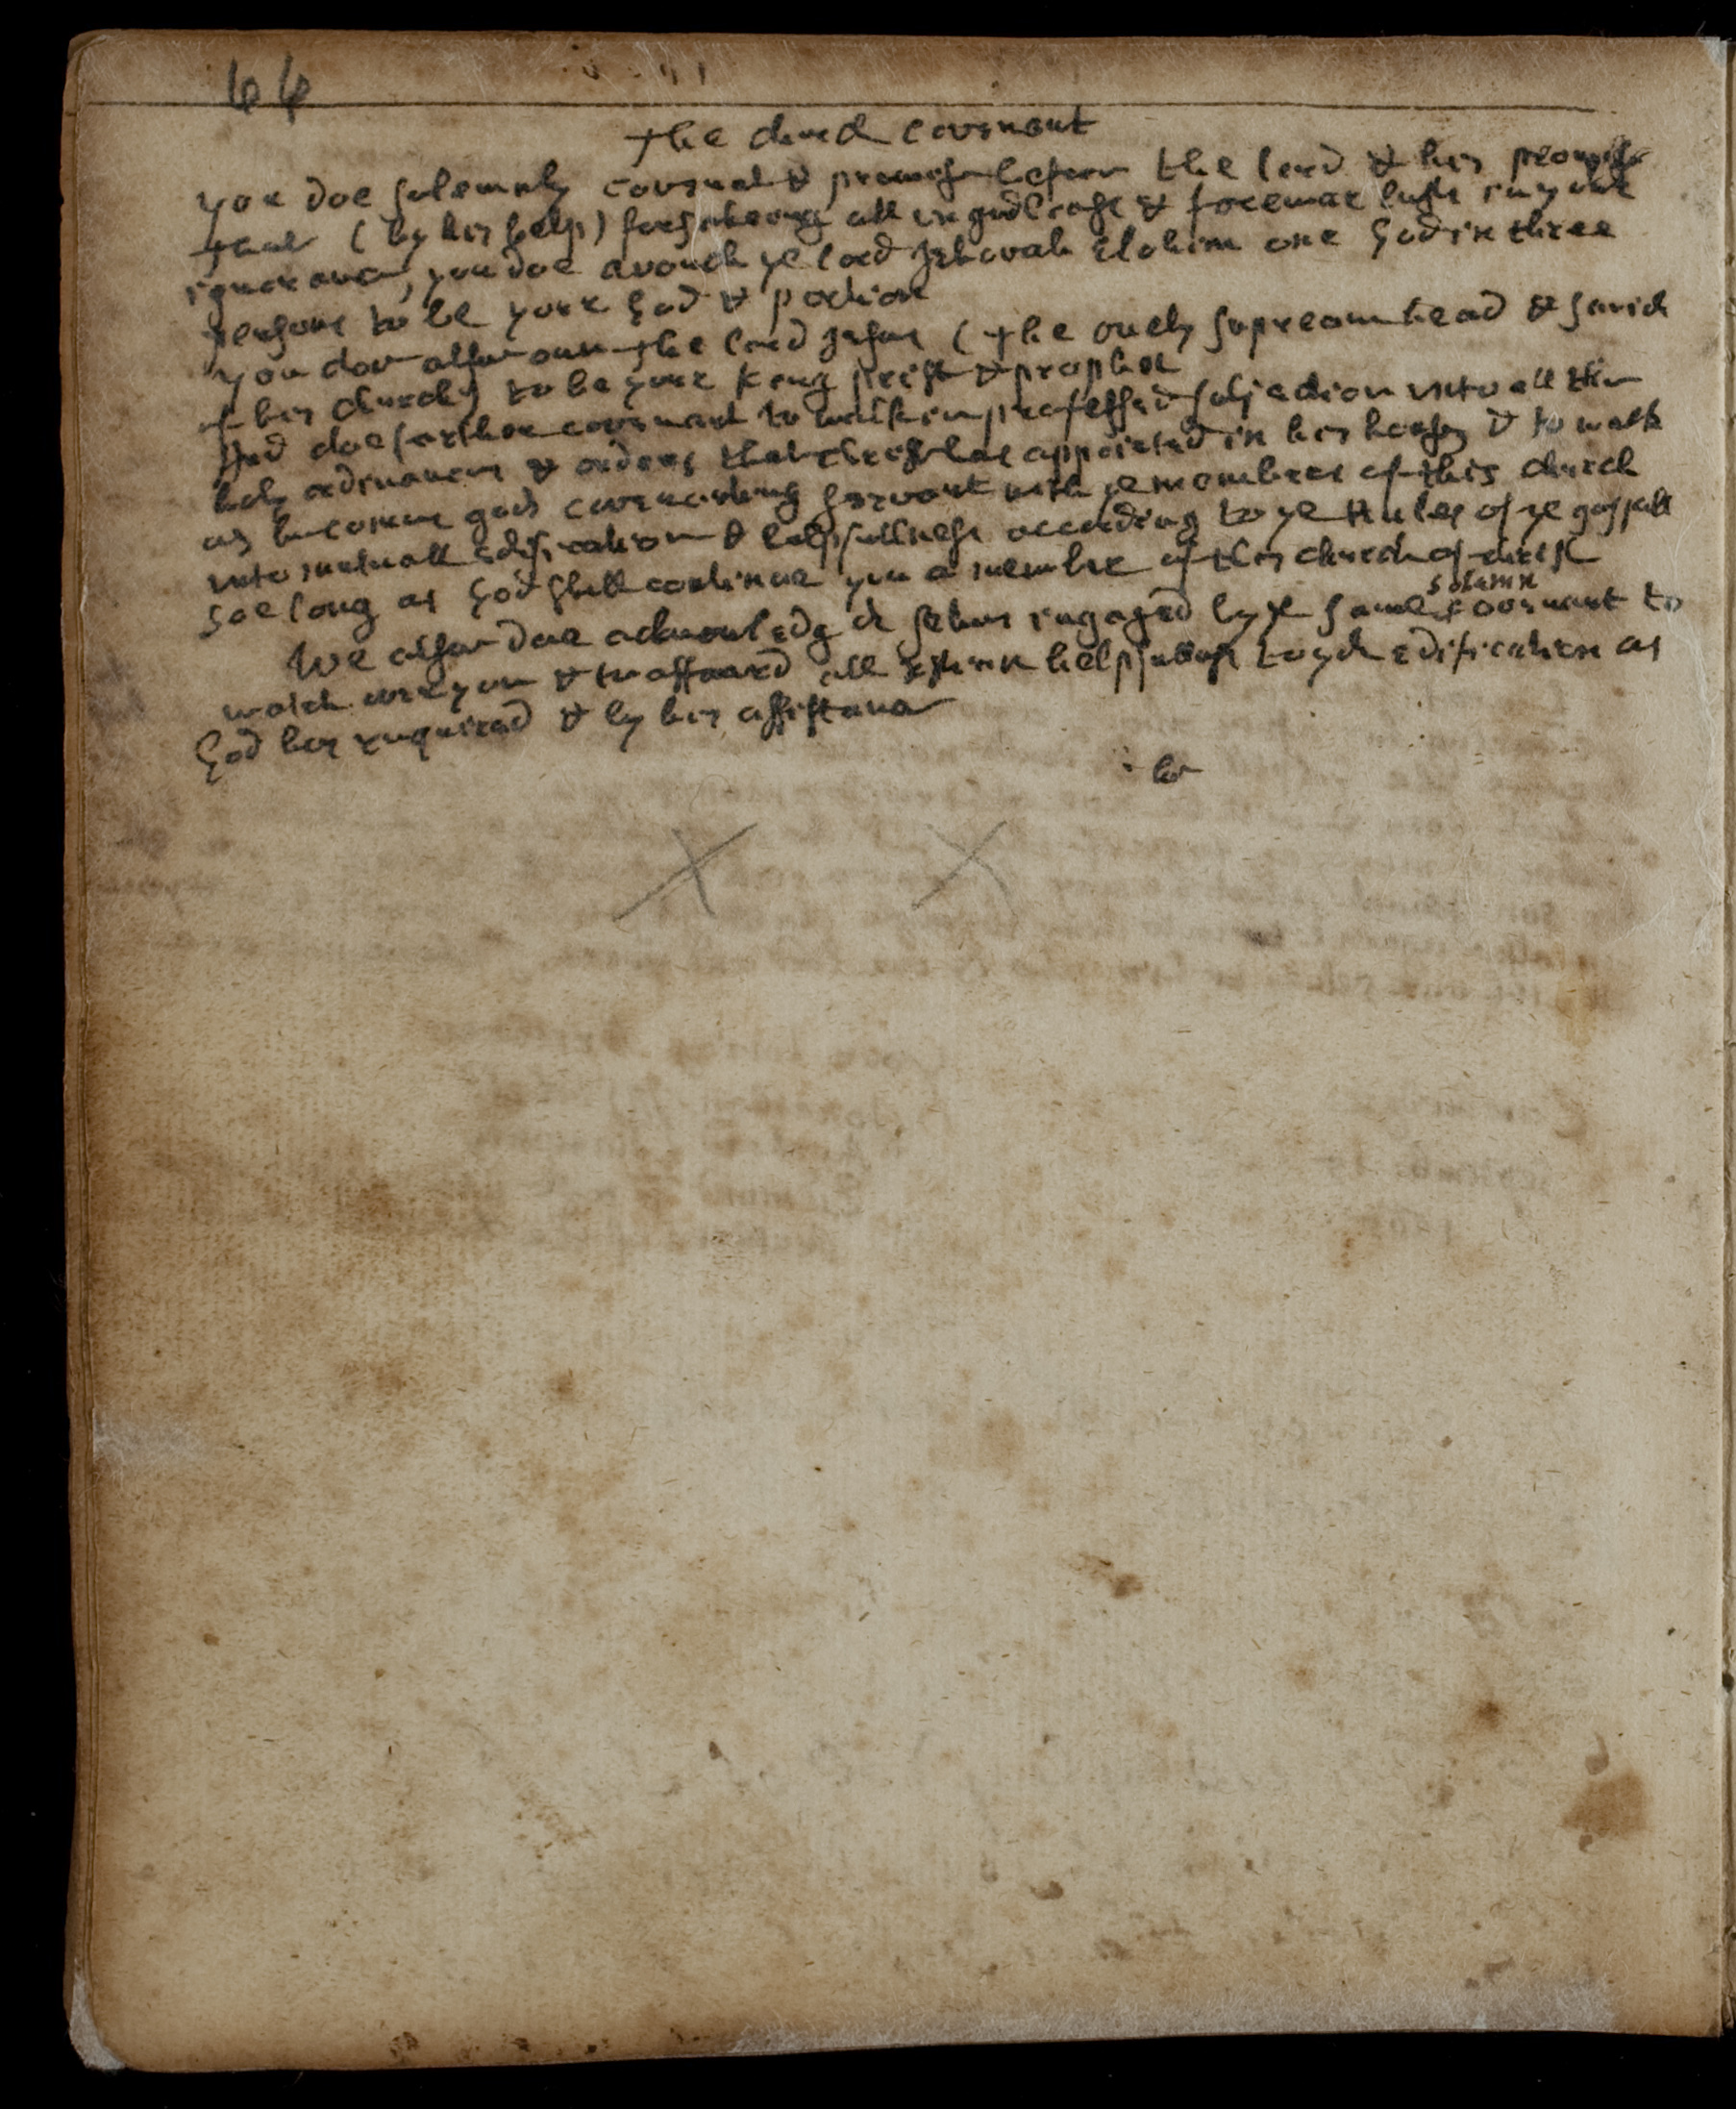 66
The church covenant
you doe solemnly covenant & promise before the lord & his people
that (by his help) forsakeing all ungodlinesse & former lusts in your
ignorance, you doe avouch ye lord Jehovah Elohim one God in three
persons to be your God & portion
You doe allso own the lord Jesus (the onely supream head &
of his church) to be your King preist & prophet
And doe further covenant to walk in professed subjection unto all the
holy ordinances & orders that christ has appointed in his house, & to walk
as becomes gods covenanting servant with ye members of this church
unto mutuall edification & helpfullnesse according to ye rules of ye gospell
soe long as God shall continue you a member of this church of christ
solemn
We allso doe acknowledg or selves ingaged by ye same covenant to
watch over you & to affoard all helpfullnesse edification as
God hes required & by his assistance